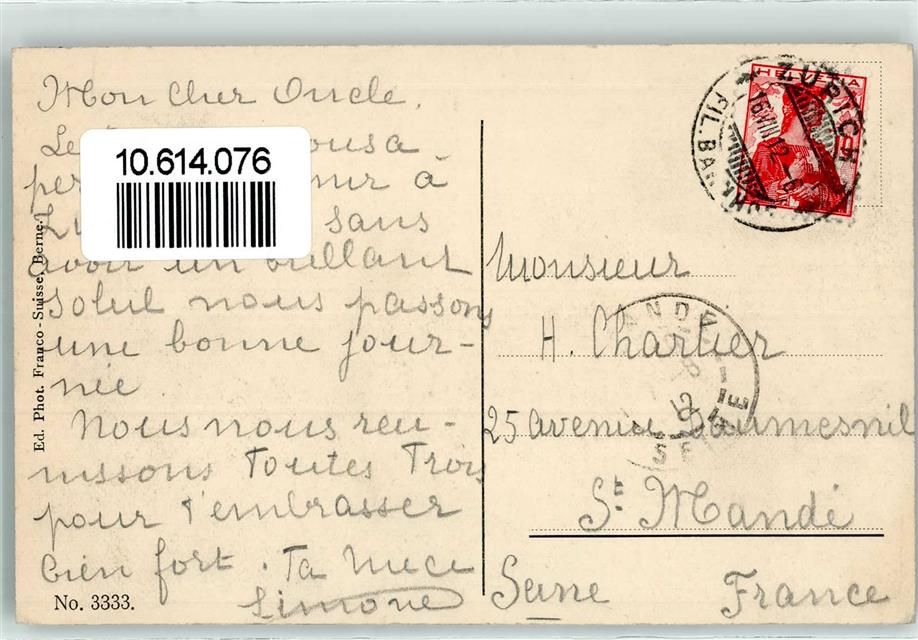 Mon cher Oncle.
Le ousa-
per nir à
sans
avoir un brillant
soleil nous passons
une bonne jour-
née.
Nous nous reu-
nissons toutes trois
pour t'embrasser
bien fort. Ta niece
Simone
Ed. Phot. Franco-Suisse, Berne.
No. 3333.
10.614.076
HELVETIA
ZÜRICH
16.VII.12
FIL. BA
Monsieur
H. Charlier
25 avenue Daumesnil
St Mandé
Seine France
ANDE
SEINE